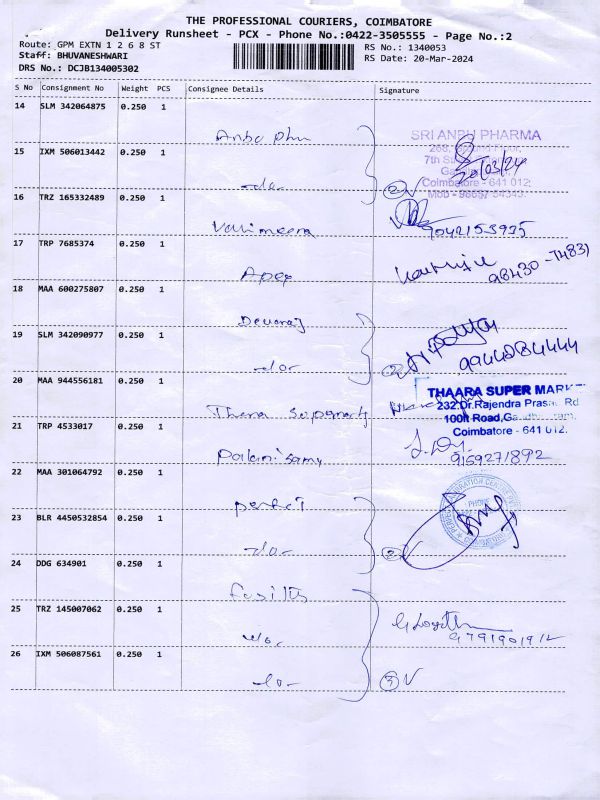 THE PROFESSIONAL COURIERS, COIMBATORE
Delivery Runsheet - PCX - Phone No.:0422-3505555 - Page No.:2
Route: GPM EXTN 1 2 6 8 ST
RS No.: 1340053
Staff: BHUVANESHWARI
RS Date: 20-Mar-2024
DRS No.: DCJB134005302
S No Consignment No Weight PCS Consignee Details Signature
14 SLM 342064875 0.250 1
SRI ANBU PHARMA
15 IXM 506013442 0.250 1
Coimbatore - 641 012
do
2
16 TRZ 165332489 0.250 1
9042153935
17 TRP 7685374 0.250 1
Apex
18 MAA 600275807 0.250 1
Devaraj
19 SLM 342090977 0.250 1
do
2
20 MAA 944556181 0.250 1
THAARA SUPER MARKE
232,Dr.Rajendra Prasad Rd
100ft Road,
Coimbatore - 641 012.
21 TRP 4533017 0.250 1
Palanisamy
9159271892
22 MAA 301064792 0.250 1
perfect
23 BLR 4450532854 0.250 1
do
2
24 DDG 634901 0.250 1
25 TRZ 145007062 0.250 1
do
26 IXM 506087561 0.250 1
do
3